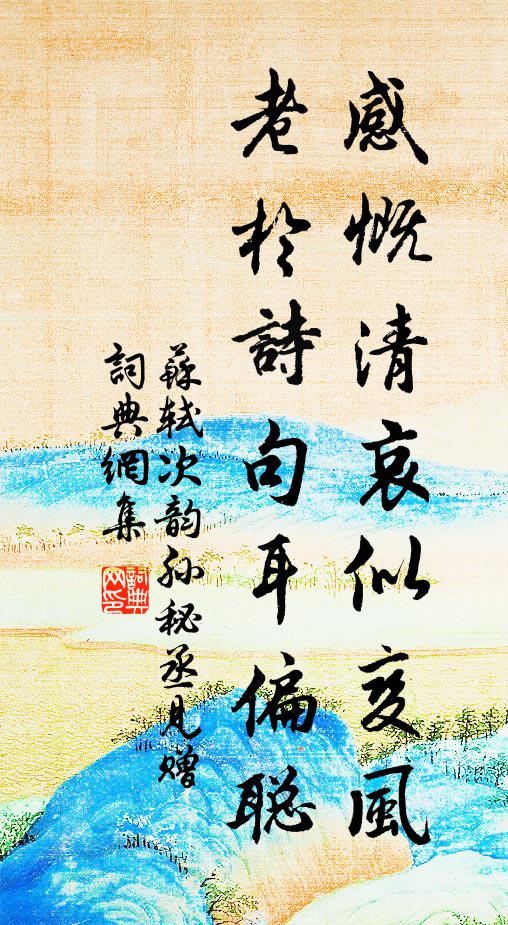 感慨清哀似变風
老於詩句耳偏聪
蘇轼次韵孙秘丞見赠
詞典網集
詞典
网印